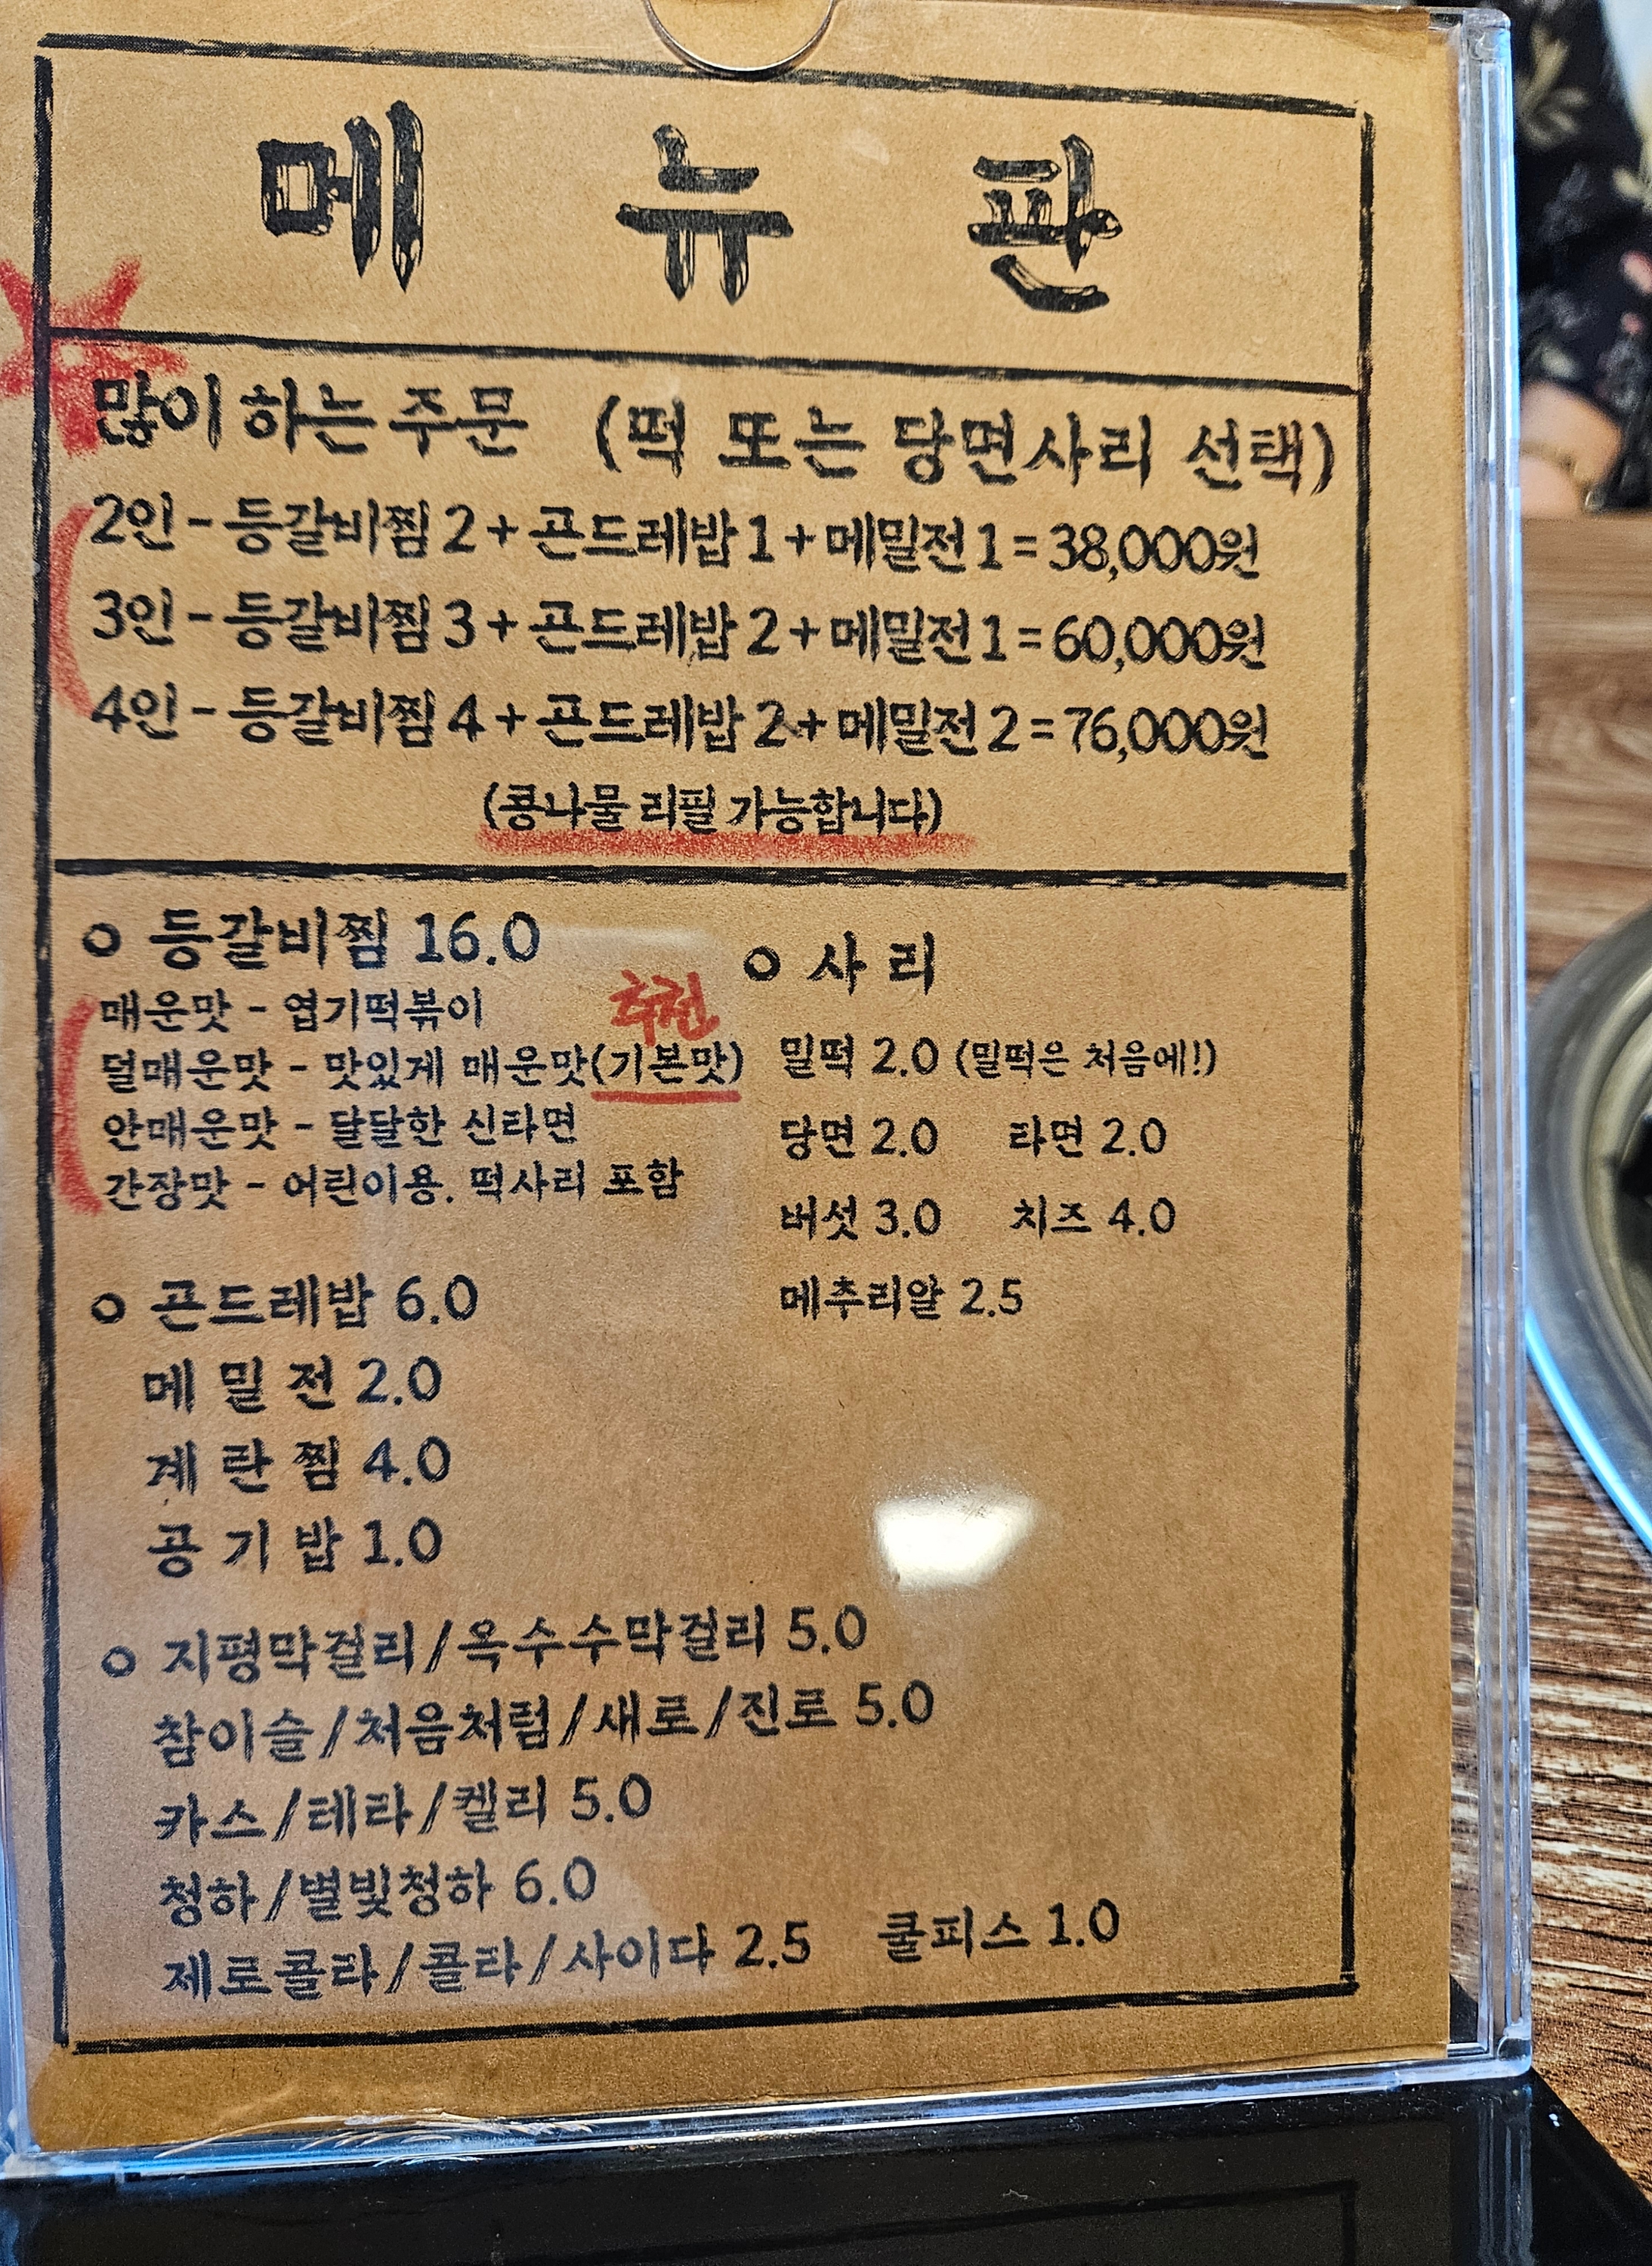 메 뉴 판
많이 하는 주문 (떡 또는 당면사리 선택)
2인 - 등갈비찜 2 + 곤드레밥 1 + 메밀전 1 = 38,000원
3인 - 등갈비찜 3 + 곤드레밥 2 + 메밀전 1 = 60,000원
4인 - 등갈비찜 4 + 곤드레밥 2 + 메밀전 2 = 76,000원
(콩나물 리필 가능합니다)
○ 등갈비찜 16.0
매운맛 - 엽기떡볶이
추천
덜매운맛 - 맛있게 매운맛(기본맛)
안매운맛 - 달달한 신라면
간장맛 - 어린이용. 떡사리 포함
○ 곤드레밥 6.0
메 밀 전 2.0
계 란 찜 4.0
공 기 밥 1.0
○ 사 리
밀떡 2.0 (밀떡은 처음에!)
당면 2.0 라면 2.0
버섯 3.0 치즈 4.0
메추리알 2.5
○ 지평막걸리/옥수수막걸리 5.0
참이슬/처음처럼/새로/진로 5.0
카스/테라/켈리 5.0
청하/별빛청하 6.0
제로콜라/콜라/사이다 2.5 쿨피스 1.0